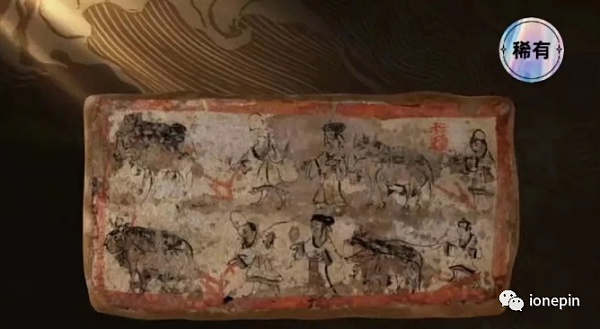 稀有
ionepin